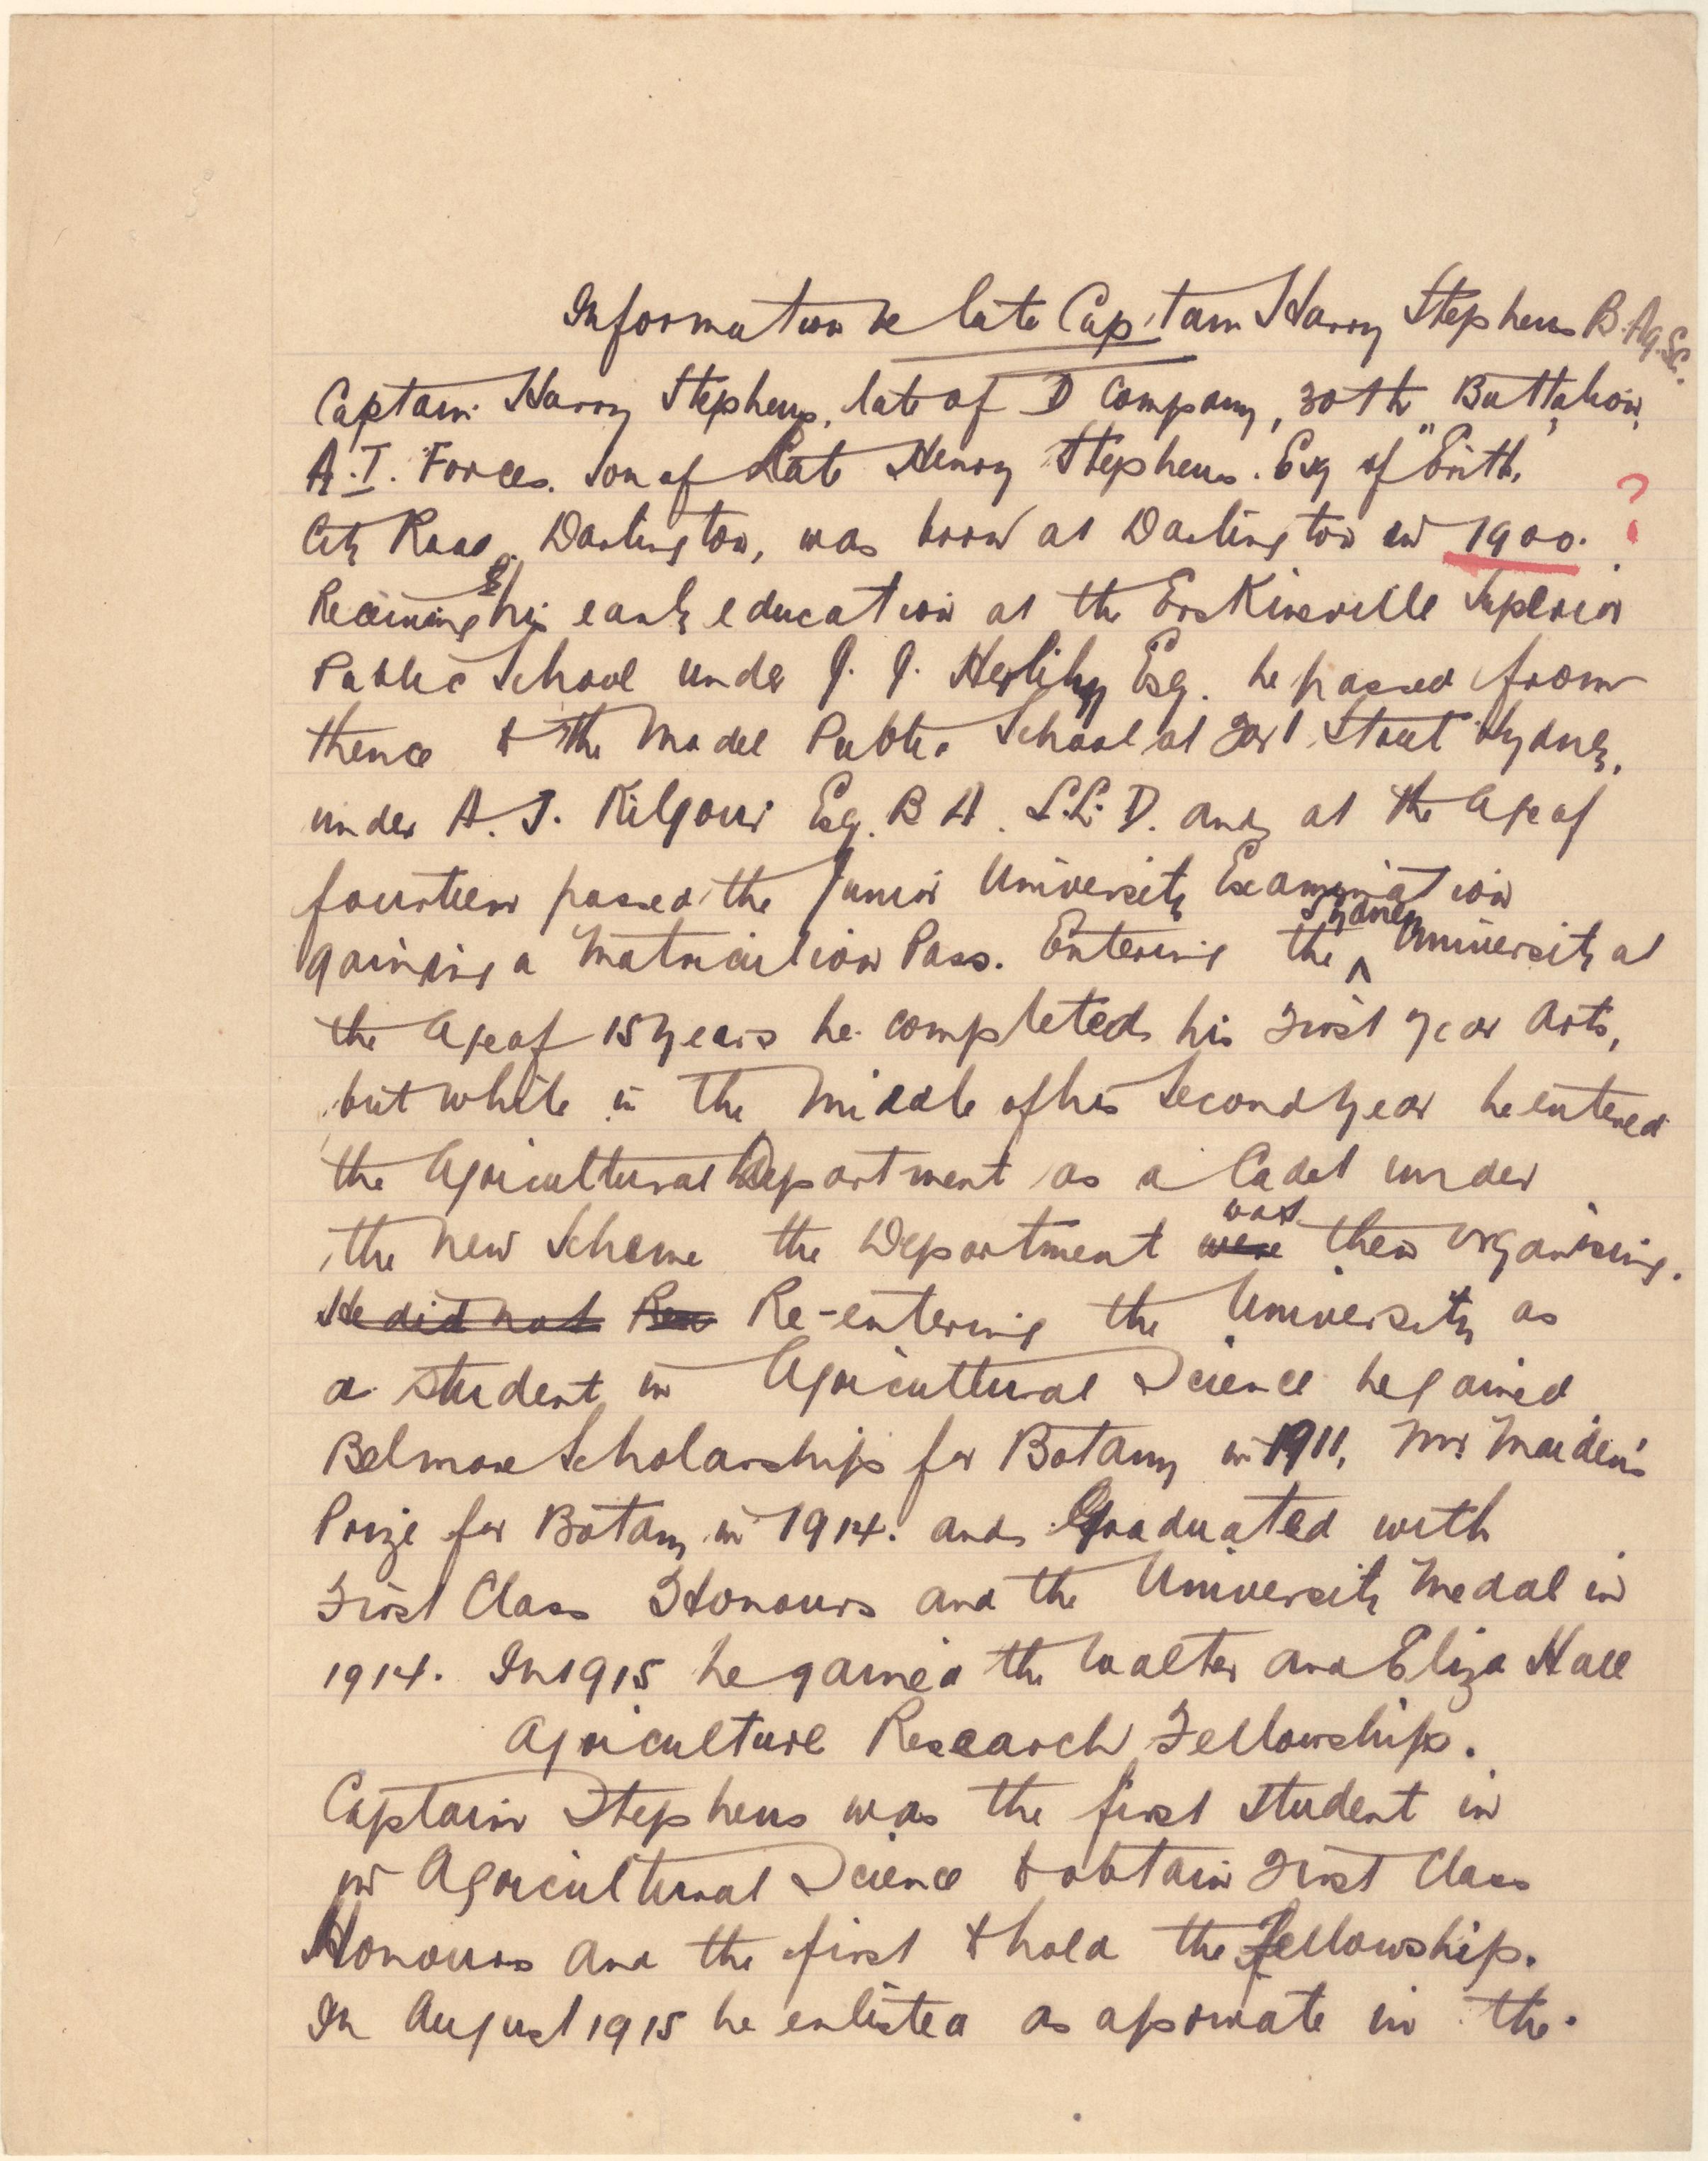 Information re late Captain Harry Stephens B.Ag.Sc.
Captain Harry Stephens, late of D Company, 30th Battalion,
A.I. Forces. Son of Late Henry Stephens. Esq of "Erith,
City Road, Darlington, was born at Darlington in 1900. ?
Receiving his early education at the Erskineville Superior
Public School under J. J. Herlihy Esq. he passed from
thence to the Model Public School at Fort Street Sydney,
under A. J. Kilgour Esq. B A. L.L. D. and at the age of
fourteen passed the Junior University Examination
gaining a Matriculation Pass. Entering the ^ Sydney University at
the age of 15 years he completed his First year Arts,
but while in the middle of his Second year he entered
the Agricultural Department as a Cadet under
the New Scheme the Department were was then organising.
He did not Re-entering the University as
a student in Agricultural Science he gained
Belmore Scholarships for Botany in 1911, Mr Maiden's
Prize for Botany in 1914. and Graduated with
First Class Honours and the University Medal in
1914. In 1915 he gained the Walter and Eliza Hall
Agriculture Research Fellowship.
Captain Stephens was the first student in
in Agricultural Science to obtain First Class
Honours and the first to hold the Fellowship.
In August 1915 he enlisted as a private in the